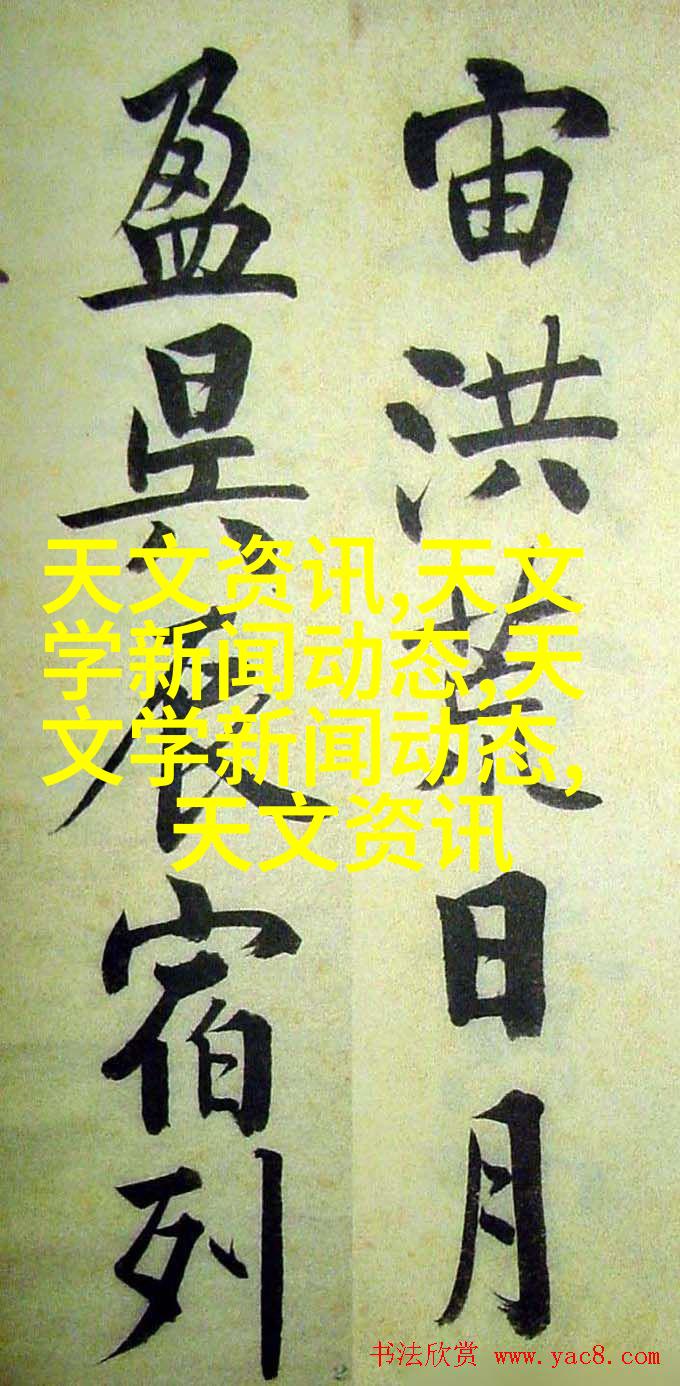 宙洪荒日月
盈昃辰宿列
天文资讯,天文
学新闻动态,天
文学新闻动态,
天文资讯
书法欣赏 www.yac8.com